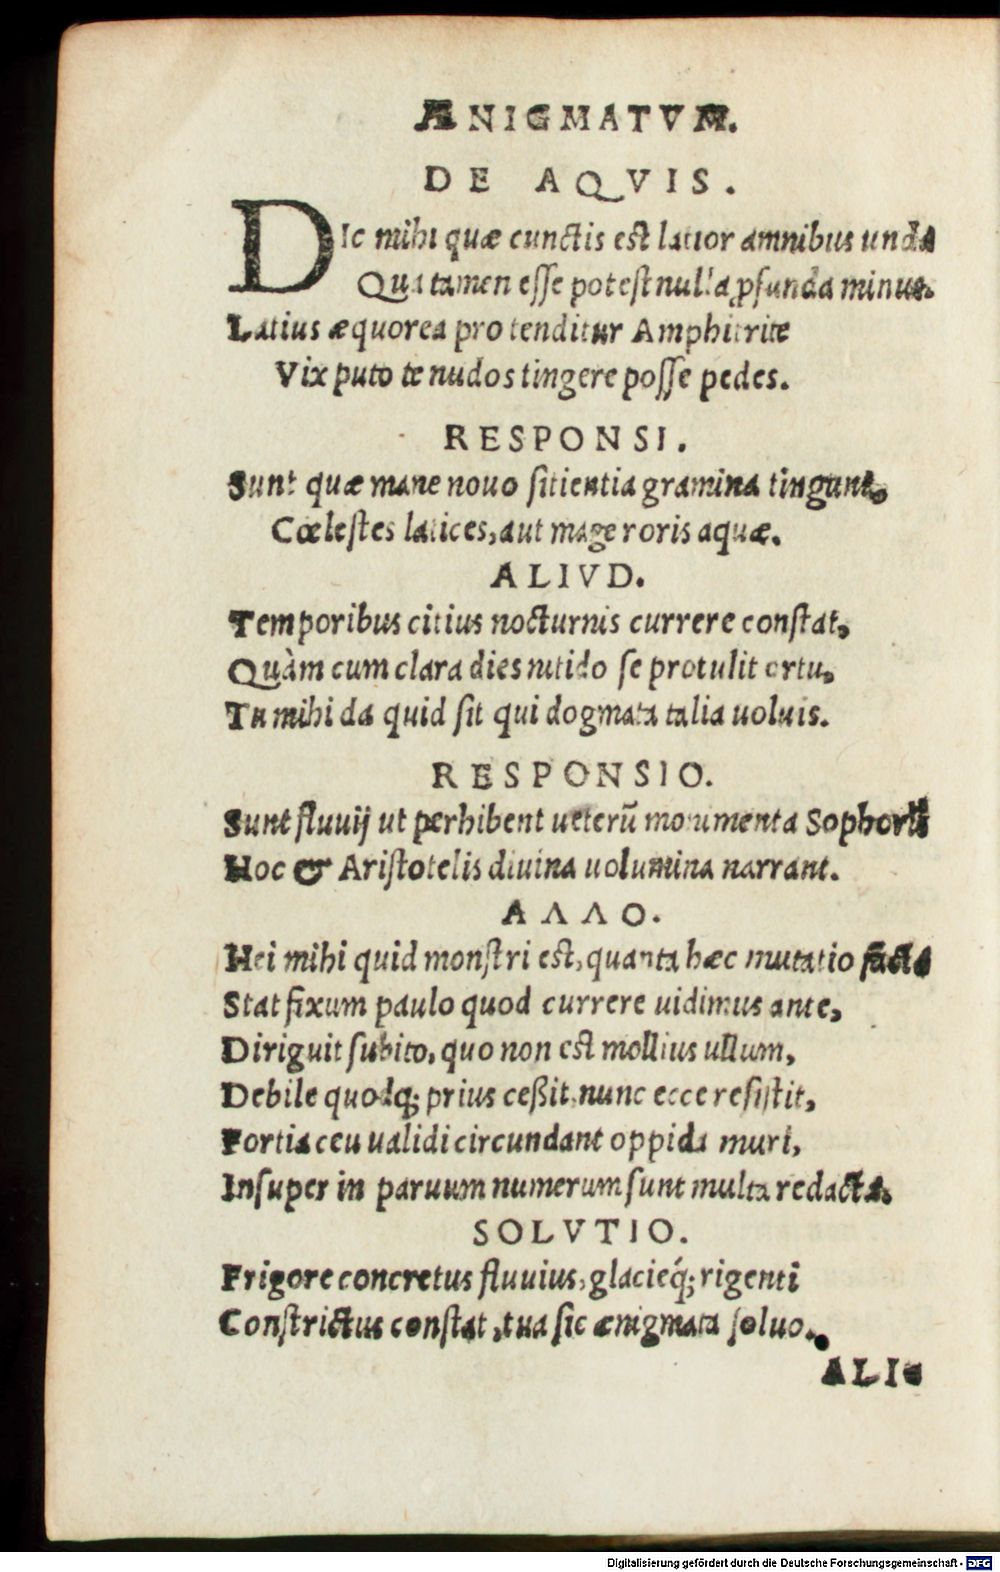 ÆNIGMATVM.
DE AQVIS.
DIc mihi quæ cunctis est latior amnibus unda
Qua tamen esse potest nulla ꝓfunda minus.
Latius æquorea protenditur Amphitrite
Vix puto te nudos tingere posse pedes.
RESPONSI.
Sunt quæ mane nouo sitientia gramina tingunt,
Cœlestes latices, aut mage roris aquæ.
ALIVD.
Temporibus citius nocturnis currere constat,
Quàm cum clara dies nitido se protulit ortu,
Tu mihi da quid sit qui dogmata talia uoluis.
RESPONSIO.
Sunt fluuij ut perhibent ueterū monumenta Sophorū
Hoc & Aristotelis diuina uolumina narrant.
ΑΛΛΟ.
Hei mihi quid monstri est, quanta hæc mutatio facta
Stat fixum paulo quod currere uidimus ante,
Diriguit subito, quo non est mollius ullum,
Debile quodq; prius ceßit, nunc ecce resistit,
Fortia ceu ualidi circundant oppida muri,
Insuper in paruum numerum sunt multa redacta.
SOLVTIO.
Frigore concretus fluuius, glacieq́; rigenti
Constrictus constat, tua sic ænigmata soluo.
ALI-
Digitalisierung gefördert durch die Deutsche Forschungsgemeinschaft - DFG